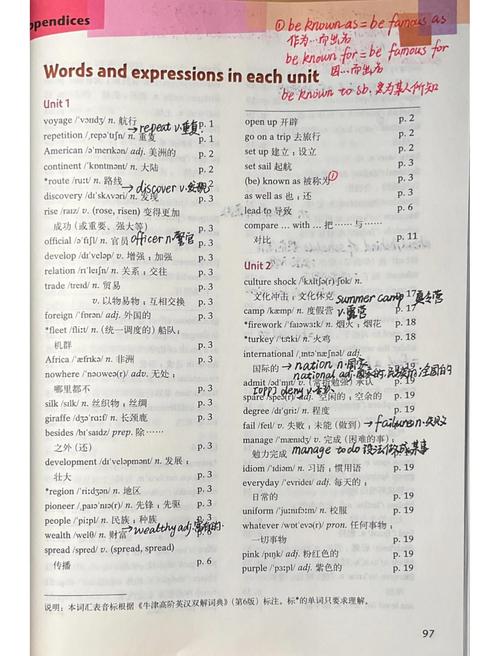 ppendices
① be known as = be famous as
作为…而出名
be known for = be famous for
因…而出名
be known to sb. 为某人所知
Words and expressions in each unit
Unit 1
voyage /ˈvɔɪɪdʒ/ n. 航行 p. 1
→ repeat v. 重复
repetition /ˌrepəˈtɪʃn/ n. 重复 p. 1
American /əˈmerɪkən/ adj. 美洲的 p. 2
continent /ˈkɒntɪnənt/ n. 大陆 p. 2
*route /ruːt/ n. 路线 p. 3
→ discover v. 发现
discovery /dɪˈskʌvəri/ n. 发现 p. 3
rise /raɪz/ v. (rose, risen) 变得更加
成功（或重要、强大等） p. 3
official /əˈfɪʃl/ n. 官员 p. 3
officer n. 警官
develop /dɪˈveləp/ v. 增强；加强 p. 3
relation /rɪˈleɪʃn/ n. 关系；交往 p. 3
trade /treɪd/ n. 贸易 p. 3
v. 以物易物；互相交换 p. 3
foreign /ˈfɒrən/ adj. 外国的 p. 3
*fleet /fliːt/ n. （统一调度的）船队，
机群 p. 3
Africa /ˈæfrɪkə/ n. 非洲 p. 3
nowhere /ˈnəʊweə(r)/ adv. 无处；
哪里都不 p. 3
silk /sɪlk/ n. 丝织物；丝绸 p. 3
giraffe /dʒəˈrɑːf/ n. 长颈鹿 p. 3
besides /bɪˈsaɪdz/ prep. 除……
之外（还） p. 3
development /dɪˈveləpmənt/ n. 发展；
壮大 p. 3
*region /ˈriːdʒən/ n. 地区 p. 3
pioneer /ˌpaɪəˈnɪə(r)/ n. 先锋；先驱 p. 3
people /ˈpiːpl/ n. 民族；种族 p. 3
wealth /welθ/ n. 财富
→ wealthy adj.
spread /spred/ v. (spread, spread)
传播 p. 6
open up 开辟 p. 2
go on a trip 去旅行 p. 2
set up 建立；设立 p. 2
set sail 起航 p. 3
(be) known as 被称为 ① p. 3
as well as 也；还 p. 3
lead to 导致 p. 6
compare … with … 把……与……
对比 p. 11
Unit 2
culture shock /ˈkʌltʃə(r) ʃɒk/
文化冲击；文化休克 p. 17
summer camp 夏令营
camp /kæmp/ n. 度假营 p. 17
v. 露营
*firework /ˈfaɪəwɜːk/ n. 烟火；烟花 p. 18
*turkey /ˈtɜːki/ n. 火鸡 p. 18
international /ˌɪntəˈnæʃnəl/ adj.
国际的
→ nation n. 国家
national adj.
admit /ədˈmɪt/ v. （常指勉强）承认 p. 19
deny v.
spare /speə(r)/ adj. 空闲的；空余的 p. 19
degree /dɪˈɡriː/ n. 程度 p. 19
fail /feɪl/ v. 失败；未能（做到）
→ failure n.
manage /ˈmænɪdʒ/ v. 完成（困难的事）；
勉力完成 p. 19
manage to do 设法做成某事
idiom /ˈɪdiəm/ n. 习语；惯用语 p. 19
everyday /ˈevrideɪ/ adj. 每天的；
日常的 p. 19
uniform /ˈjuːnɪfɔːm/ n. 校服 p. 19
whatever /wɒtˈevə(r)/ pron. 任何事物；
一切事物 p. 19
pink /pɪŋk/ adj. 粉红色的 p. 19
purple /ˈpɜːpl/ adj. 紫色的 p. 19
说明：本词汇表音标根据《牛津高阶英汉双解词典》（第6版）标注。标*的单词只要求理解。
97